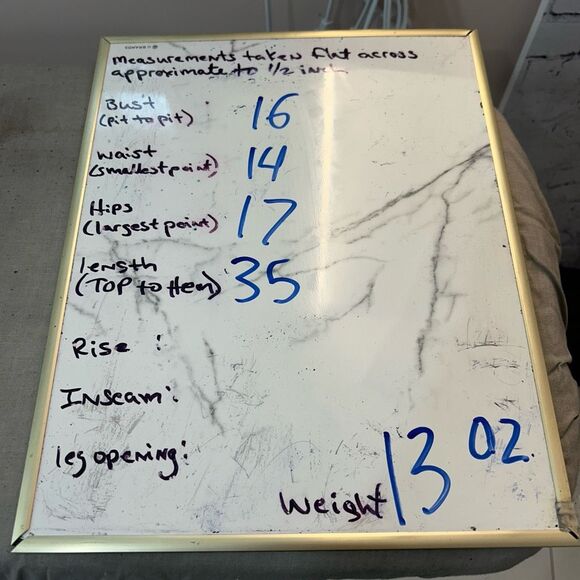 U BRANDS
measurements taken flat across
approximate to 1/2 inch
Bust 16
(pit to pit)
waist 14
(smallest point)
Hips 17
(largest point)
length 35
(TOP to Hem)
Rise :
Inseam:
leg opening:
Weight 13 OZ.